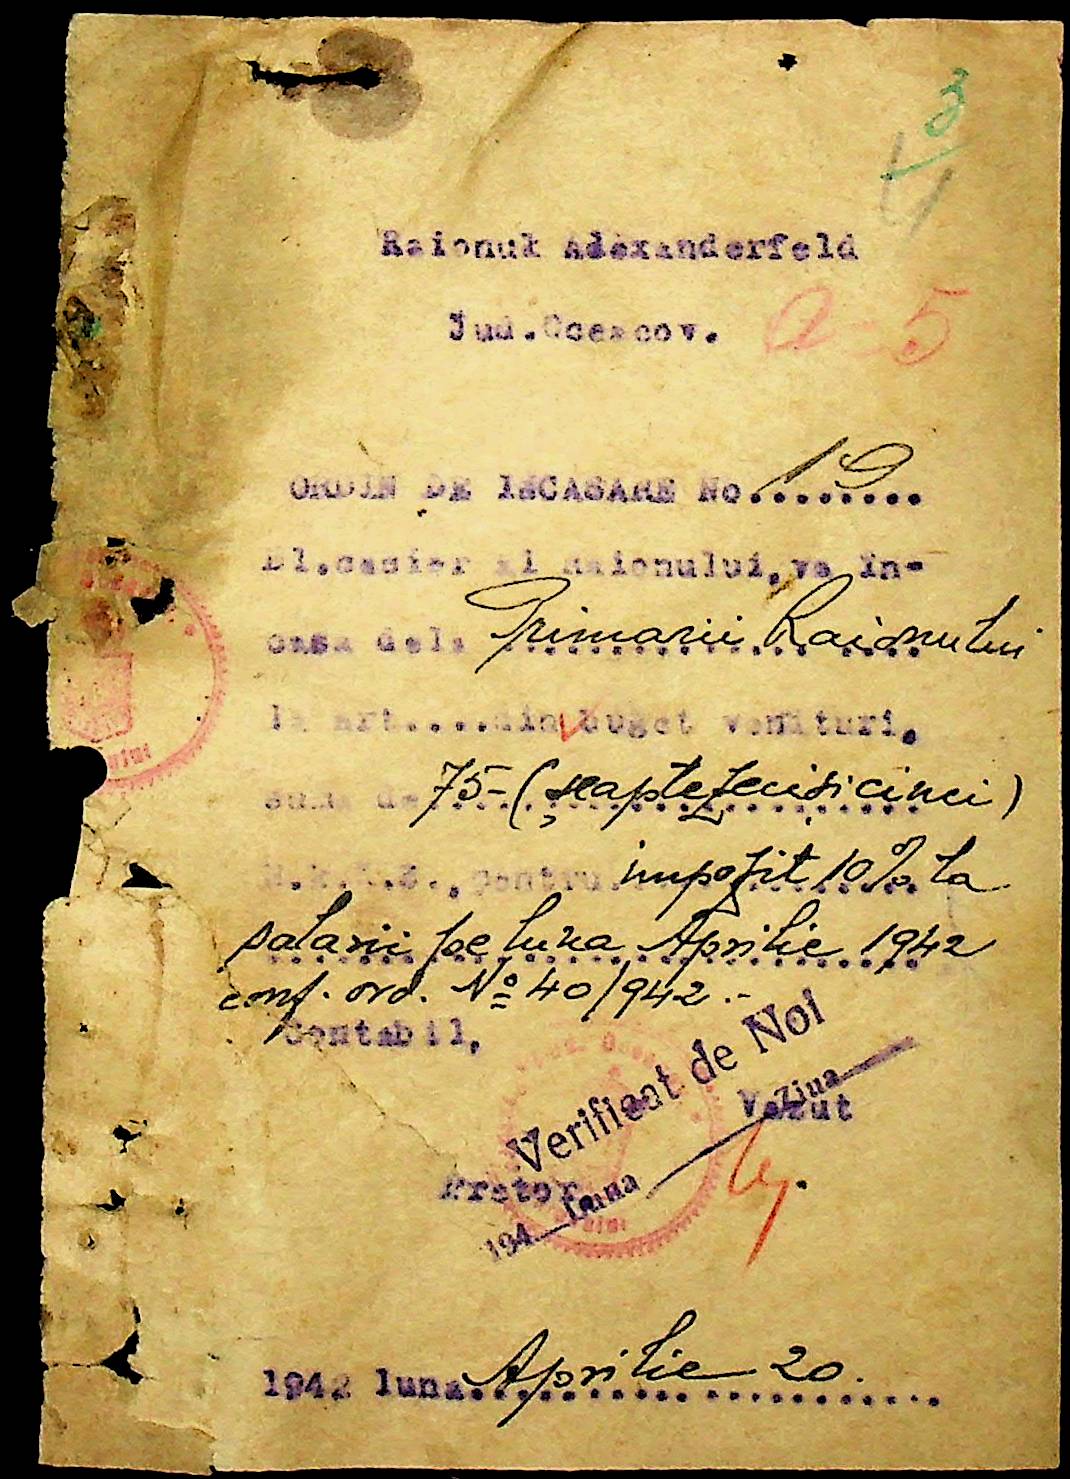 3
4
Raionul Alexanderfeld
Jud.Oceacov.
a-5
ORDIN DE INCASARE No. 19
Dl.casier al Raionului, va în-
casa dela Primarii Raionului
la art....din buget venituri,
suma de 75-(șeaptezecișicinci)
R.K.K.S., pentru impozit 10% la
salarii pe luna Aprilie 1942
conf. ord. № 40/942..
Contabil,
Verificat de Noi
Vazut
Ziua
Pretor
194 Luna
1942 luna Aprilie 20.